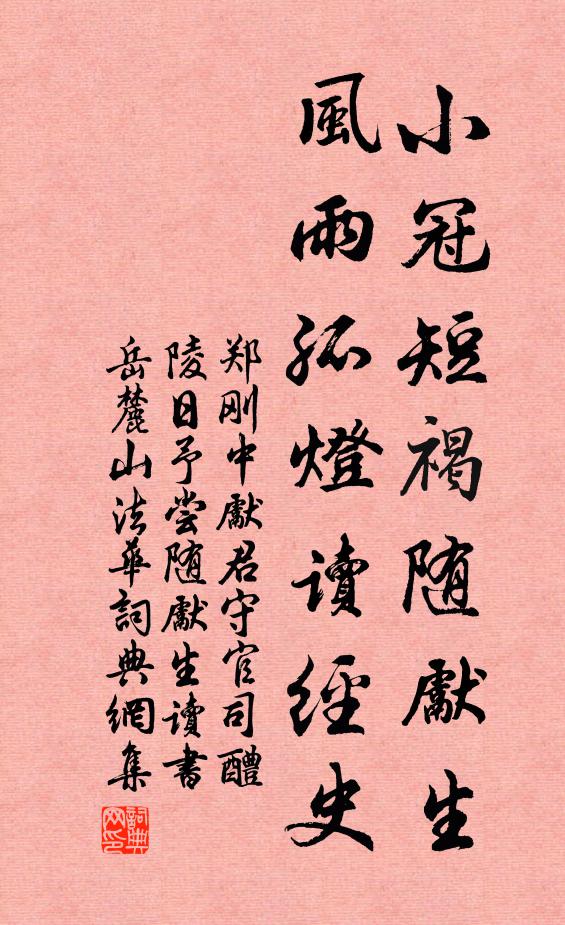 小冠短褐随獻生
風雨孤燈讀經史
郑刚中獻君守官司醴
陵日予尝随獻生讀書
岳麓山法華詞典網集
詞典网印